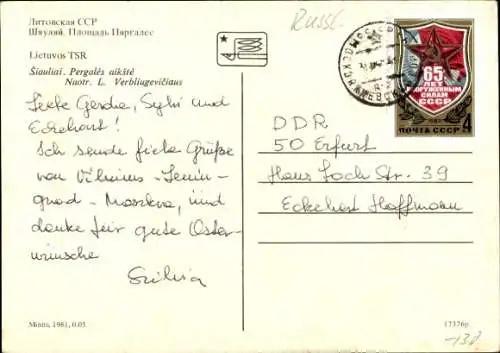 Литовская ССР
Шяуляй. Площадь Пяргалес
Lietuvos TSR
Šiauliai. Pergalės aikštė
Nuotr. L. Verbliugevičiaus
Russl.
65
ЛЕТ
ВООРУЖЕННЫМ
СИЛАМ
СССР
ПОЧТА СССР 4
Liebe Gerda, Sylvi und
Eckehart!
Ich sende liebe Grüße
von Vilnius - Lenin-
grad - Moskva, und
danke für gute Oster-
wünsche
Silvia
DDR
50 Erfurt
Hans Loch Str. 39
Eckehart Hoffmann
Mintis, 1981, 0.05.
17376p.
-138